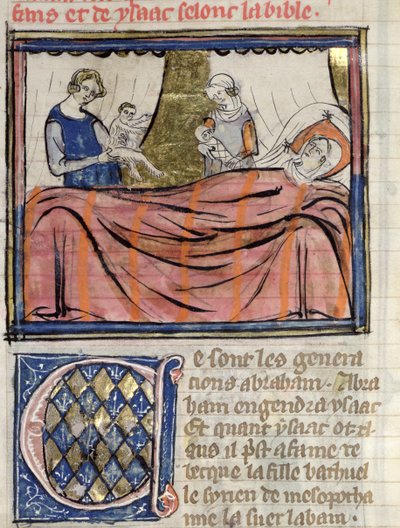 fans et de ysaac selonc la bible.
Ce sont les genera
cions abraham. Abra
ham engendra ysaac
Et quant ysaac ot .xl.
ans il pst a fame re
becque la fille bathuel
le syrien de mesopotha
mie la suer labam.